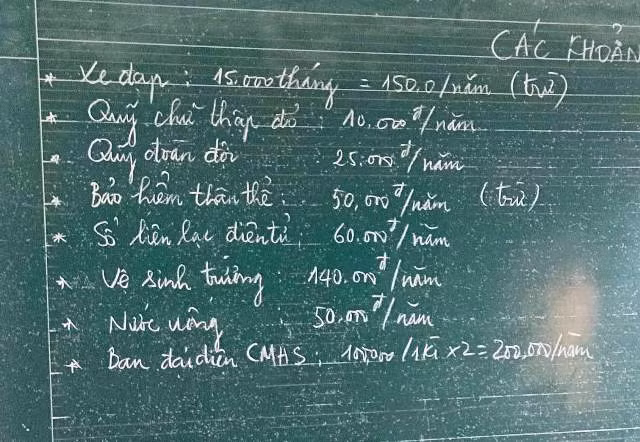 CÁC KHOẢN
* Xe đạp : 15.000 tháng = 150.0/năm (trừ)
* Quỹ chữ thập đỏ : 10.000đ/năm
* Quỹ đoàn đội : 25.000đ/năm
* Bảo hiểm thân thể : 50.000đ/năm (trừ)
* Sổ liên lạc điện tử : 60.000đ/năm
* Vệ sinh trường : 140.000đ/năm
* Nước uống : 50.000đ/năm
* Ban đại diện CMHS : 100,000/1kì x2 = 200,000/năm